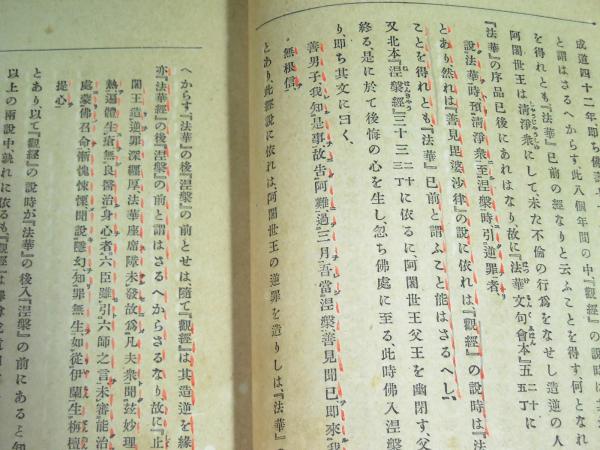 成道四十二年即ち佛壽七十
と謂はさるへからす此八個年間の中『觀經』の說時は其
を得れとも『法華』已前の經なりと云ふことを得す、何となれ
阿闍世王は淸淨衆にして、未た不倫の行爲をなせし造逆の人
『法華』の序品已後にあれはなり故に『法華文句會本』五 二十 五丁に
說『法華』時預淸淨衆至涅槃時引逆罪者
とあり、然れは『善見毘婆沙律』の說に依れは『觀經』の說時は『法
ことを得れとも『法華』已前と謂ふこと能はさるへし。
又北本『涅槃經』三十三 二十 三丁に依るに阿闍世王父王を幽閉す父
終る、是に於て後悔の心を生し、忽ち佛處に至る、此時佛入涅槃
り、即ち其文に曰く、
善男子我知是事故告阿難過三月吾當涅槃善見聞已即來我
無根信、
とあり、此經說に依れは、阿闍世王の逆罪を造りしは、『法華』
へからす『法華』の後『涅槃』の前とせは隨て『觀經』は其造逆を緣
亦『法華經』の後『涅槃』の前と謂はさるへからさるなり故に『止
闍王造逆罪深纒厚法華座席障未發故爲凡夫衆聞玆妙理
熱遍體生瘡無良醫治身心者六臣雖引六師之言未審能治
處蒙佛召命慚愧悚慄聞說隱幻知罪無生如從伊蘭生栴檀
提心
とあり、以て『觀經』の說時が『法華』の後入『涅槃』の前にあると知
以上の兩說中、孰れに依るも『觀經』は